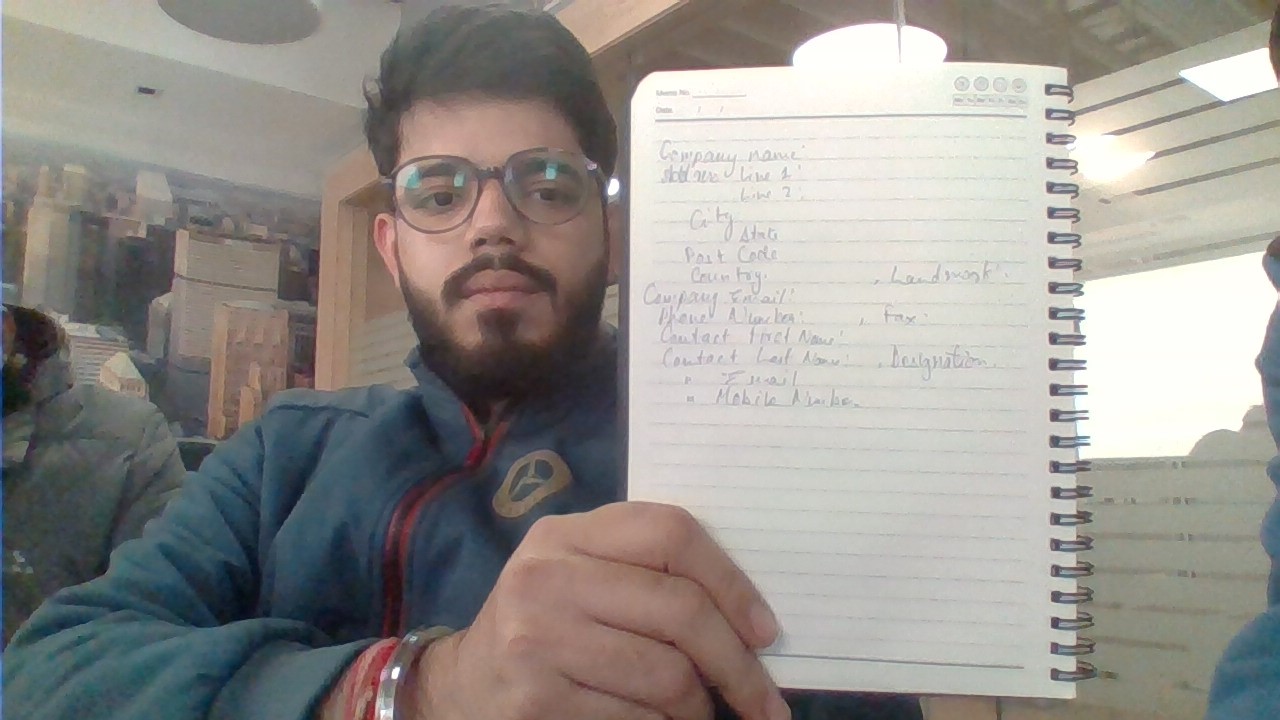 Memo No.
Date / /
Company name:
Address Line 1:
Line 2:
City
State
Post Code
Country. , Landmark:
Company Email:
Phone Number: , Fax:
Contact First Name:
Contact Last Name: , Designation.
" Email
" Mobile Number.